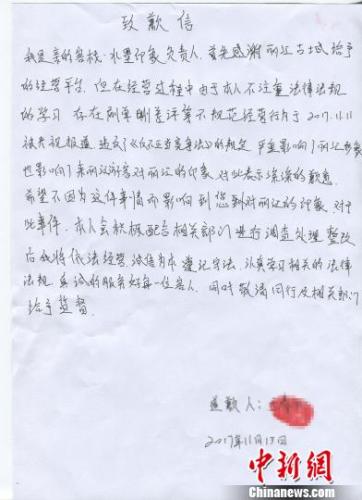 致歉信
我是亲的客栈·水墨印象负责人,首先感谢丽江古城给予
的经营平台,但在经营过程中由于本人不注重法律法规
的学习 存在刷单删差评等不规范经营行为于2017.11.11
被央视报道,违反了《反不正当竞争法》的规定 严重影响了丽江形象
也影响了来丽江游客对丽江的印象 对此表示深深的歉意
希望不因为这件事情而影响到您到对丽江的印象.对于
此事件,本人会积极配合相关部门进行调查处理 整改
后我将依法经营 诚信为本 遵纪守法,认真学习相关的法律
法规 真诚的服务好每一位客人,同时敬请同行及相关部门
给予监督.
道歉人:
2017年11月13日
中新网
Chinanews.com